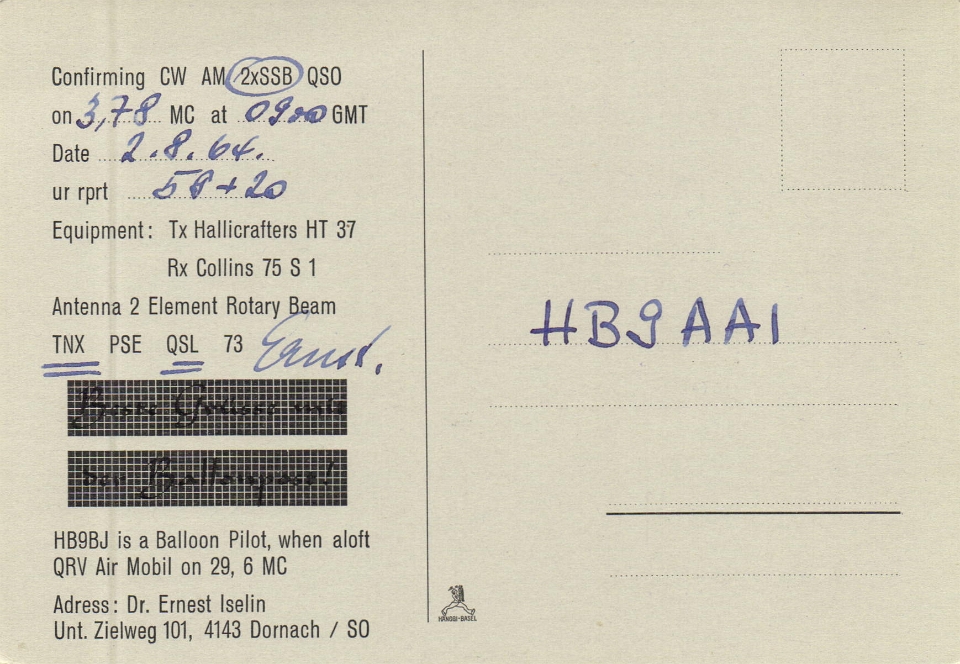 Confirming CW AM 2xSSB QSO
on 3,78 MC at 0900 GMT
Date 2.8.64.
ur rprt 59+20
Equipment: Tx Hallicrafters HT 37
Rx Collins 75 S 1
Antenna 2 Element Rotary Beam
TNX PSE QSL 73 Ernst.
Beste Grüsse mit
der Ballonpost!
HB9BJ is a Balloon Pilot, when aloft
QRV Air Mobil on 29, 6 MC
Adress: Dr. Ernest Iselin
Unt. Zielweg 101, 4143 Dornach / SO
HÄNGGI-BASEL
HB9AAI